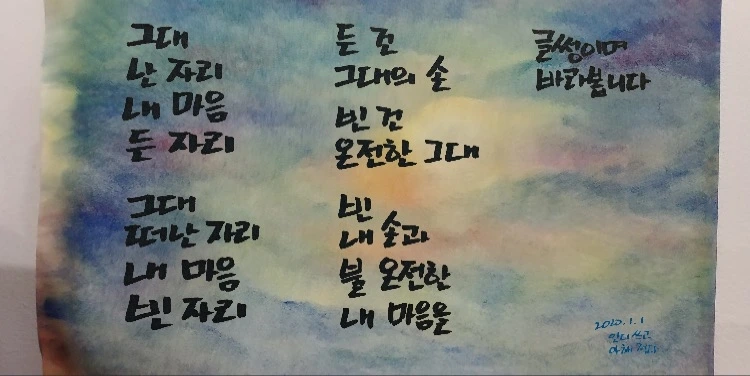 그대
난 자리
내 마음
든 자리
그대
떠난 자리
내 마음
빈 자리
든 건
그대의 손
빈 건
온전한 그대
빈
내 손과
불 온전한
내 마음을
글썽이며
바라봅니다
2020.1.1
언니 쓰고